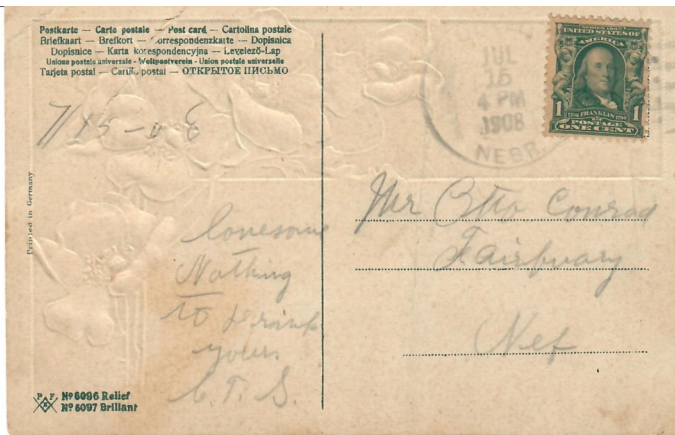 Postkarte — Carte postale — Post card — Cartolina postale
Briefkaart — Brefkort — Correspondenzkarte — Dopisnica
Dopisnice — Karta korespondencyjna — Levelező-Lap
Unione postale universale - Weltpostverein - Union postale universelle
Tarjeta postal — Cartão postal — ОТКРЫТОЕ ПИСЬМО
7/15-08
JUL
15
4 PM
1908
NEBR.
UNITED STATES OF
AMERICA
FRANKLIN
1 POSTAGE 1
ONE CENT
Printed in Germany
Lonesome
Nothing
to drink
yours
C. T. S.
Mr Otto Conrad
Fairbuary
Neb
P F
Nº 6096 Relief
Nº 6097 Brillant